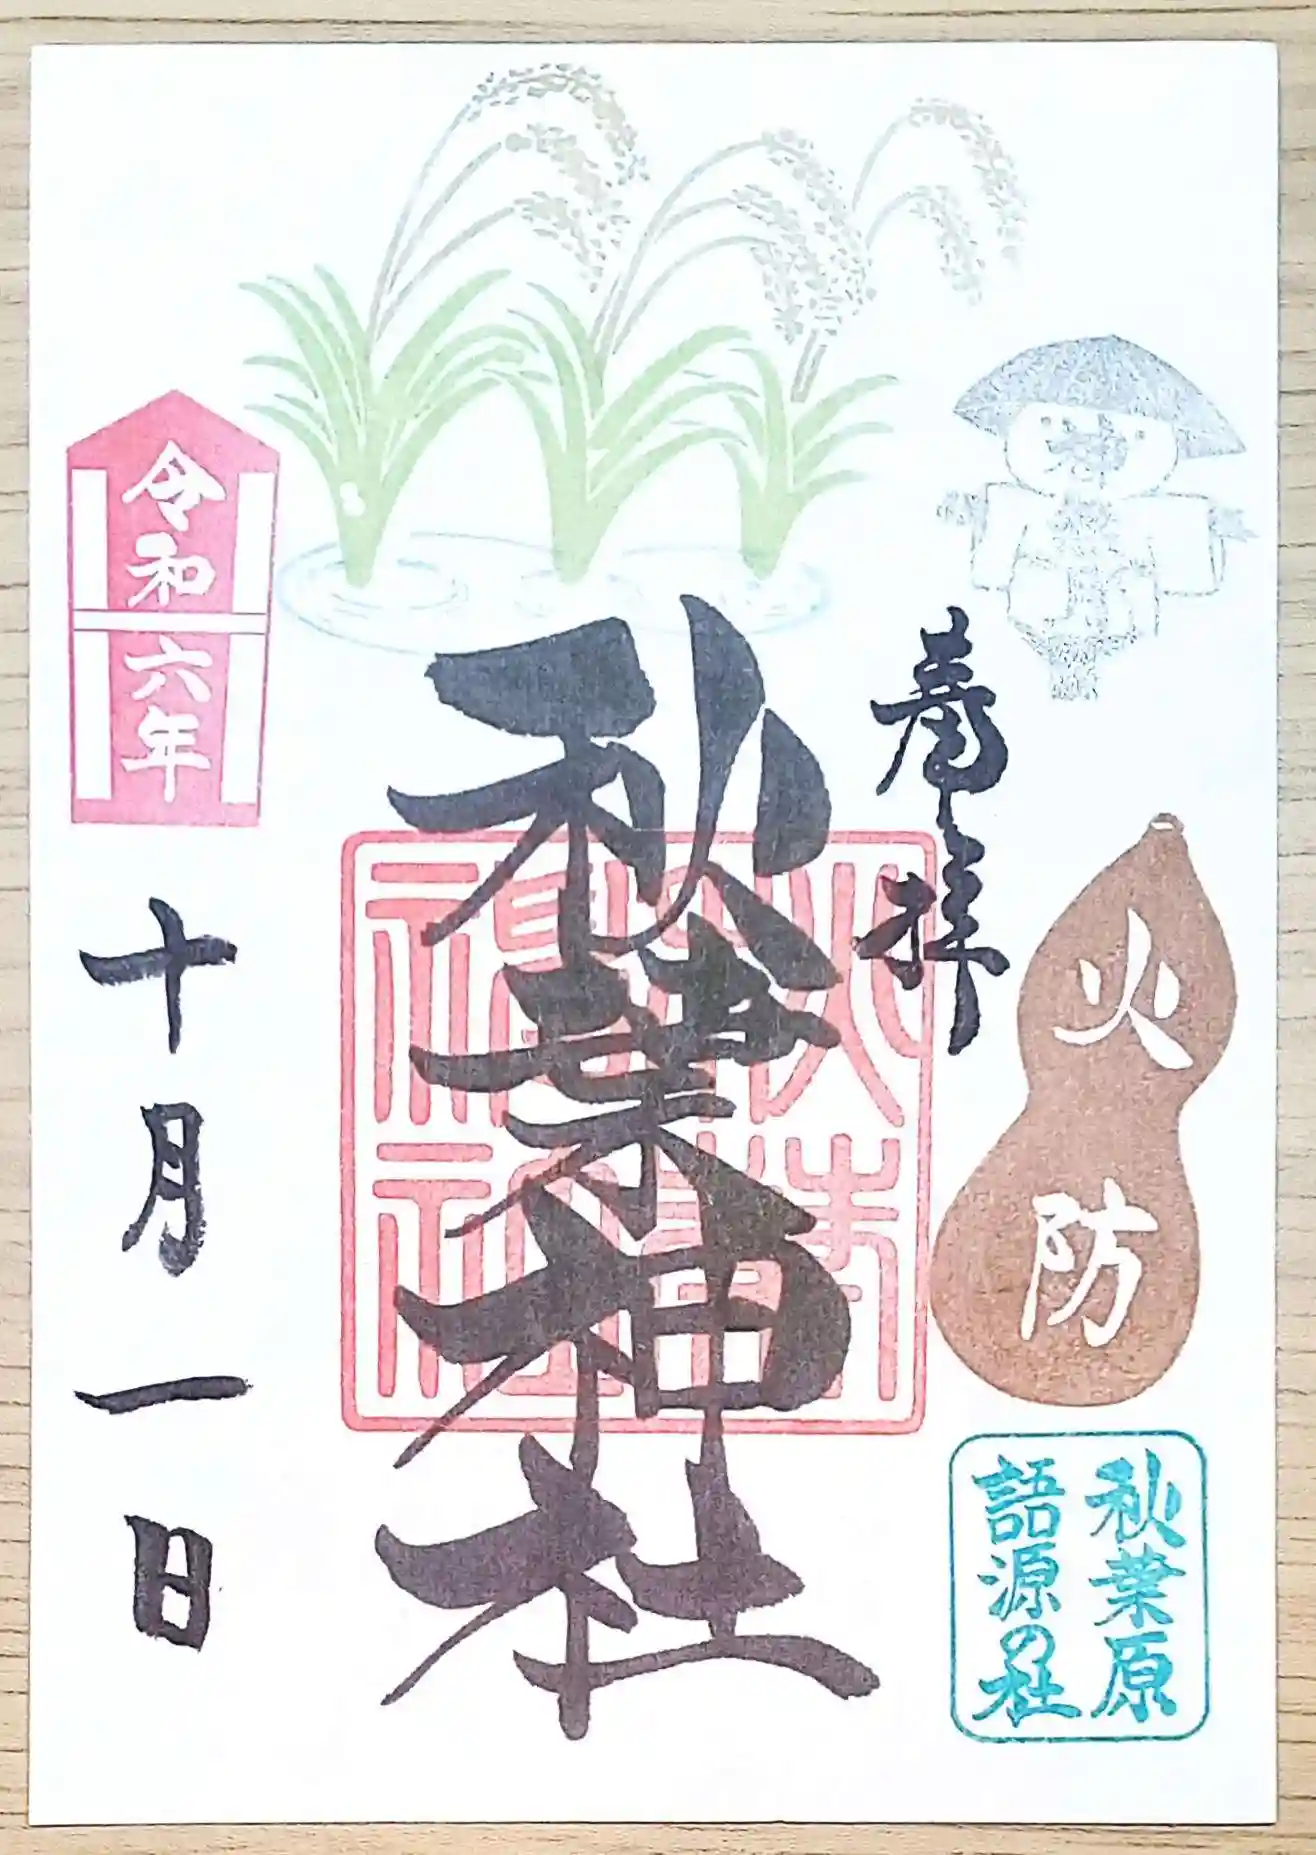 奉拝
火防
秋葉原
語源の社
秋葉神社
令和六年
十月一日